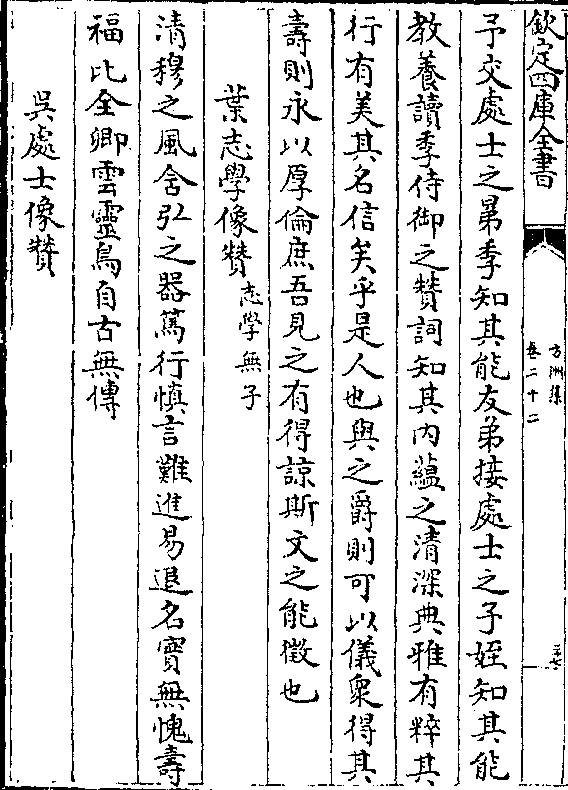 欽定四庫全書
方洲集
卷二十二
予交處士之弟季知其能友弟接處士之子姪知其能
教養讀季侍御之贊詞知其内蘊之清深典雅有粹其
行有美其名信矣乎是人也與之爵則可以儀衆得其
壽則永以厚倫庶吾見之有得諒斯文之能徵也
葉志學像贊志學無子
清穆之風含弘之器篤行慎言難進易退名實無愧壽
福比全卿雲靈鳥自古無傳
吳處士像贊